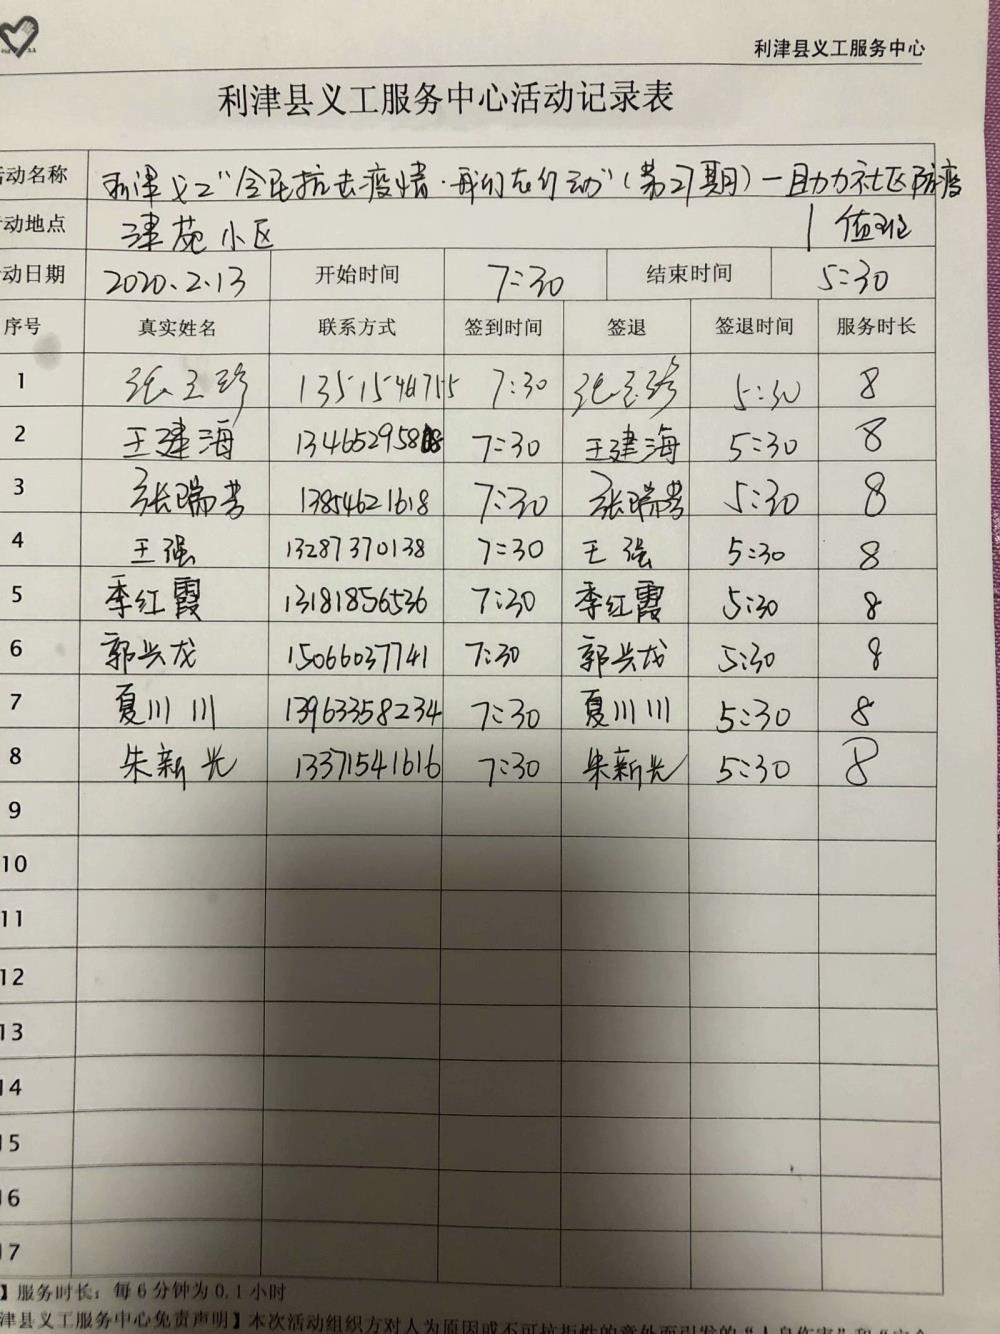 利津县义工服务中心
利津县义工服务中心活动记录表
活动名称 利津义工“全民抗击疫情·我们在行动”(第27期)一助力社区防疫
值班
动地点 津苑小区
动日期 2020.2.13 开始时间 7:30 结束时间 5:30
序号 真实姓名 联系方式 签到时间 签退 签退时间 服务时长
1 张玉珍 7:30 张玉珍 5:30 8
2 王建海 7:30 王建海 5:30 8
3 张瑞芳 13854621618 7:30 张瑞芳 5:30 8
4 王强 13287370138 7:30 王强 5:30 8
5 季红霞 13181856536 7:30 季红霞 5:30 8
6 郭兴龙 15066037741 7:30 郭兴龙 5:30 8
7 夏川川 13963358234 7:30 夏川川 5:30 8
8 朱新光 13371541616 7:30 朱新光 5:30 8
9
10
11
12
13
14
15
16
17
】服务时长：每6分钟为0.1小时
津县义工服务中心免责声明】本次活动组织方对人为原因或不可抗拒性的意外而引发的“人身伤害”和